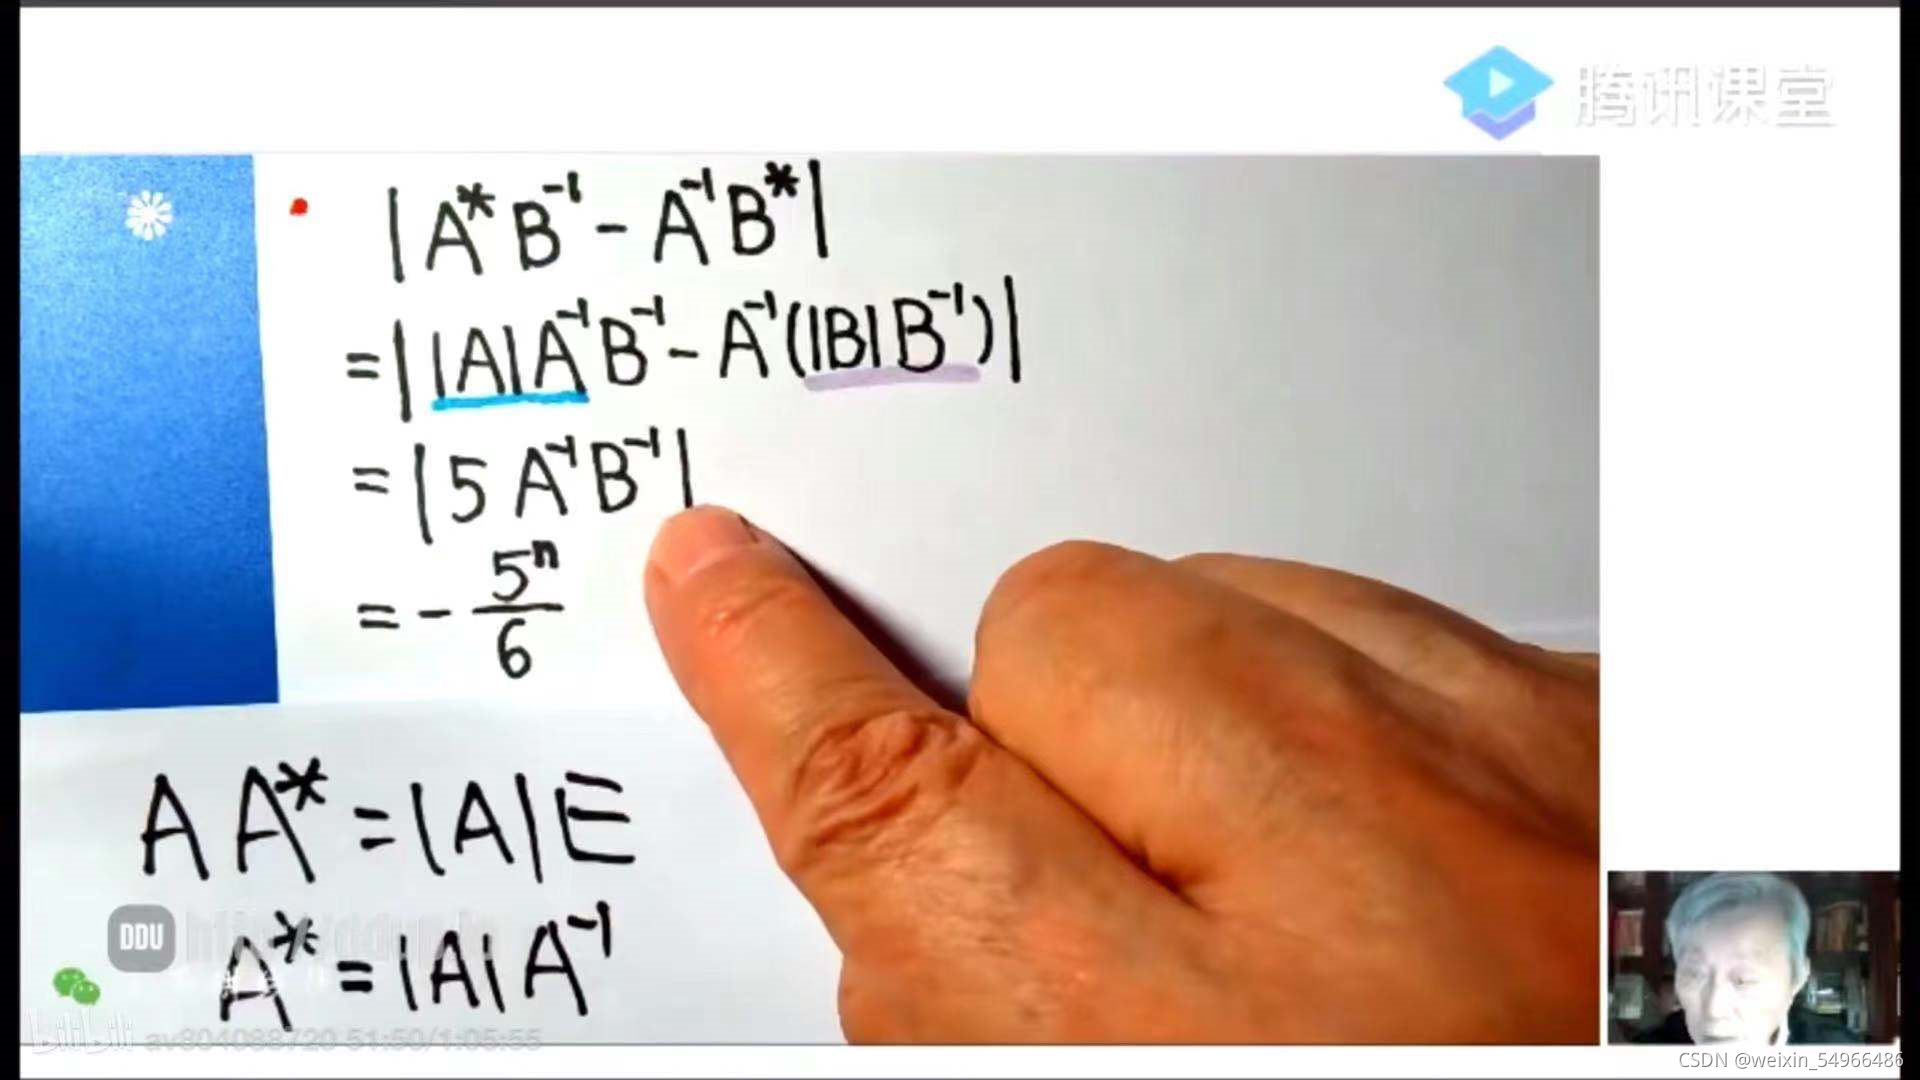 腾讯课堂
|A*B⁻¹-A⁻¹B*|
=||A|A⁻¹B⁻¹-A⁻¹(|B|B⁻¹)|
=|5A⁻¹B⁻¹|
=-5ⁿ/6
AA*=|A|E
DDU
A*=|A|A⁻¹
bilibili av804088720 51:50/1:05:55
CSDN @weixin_54966486